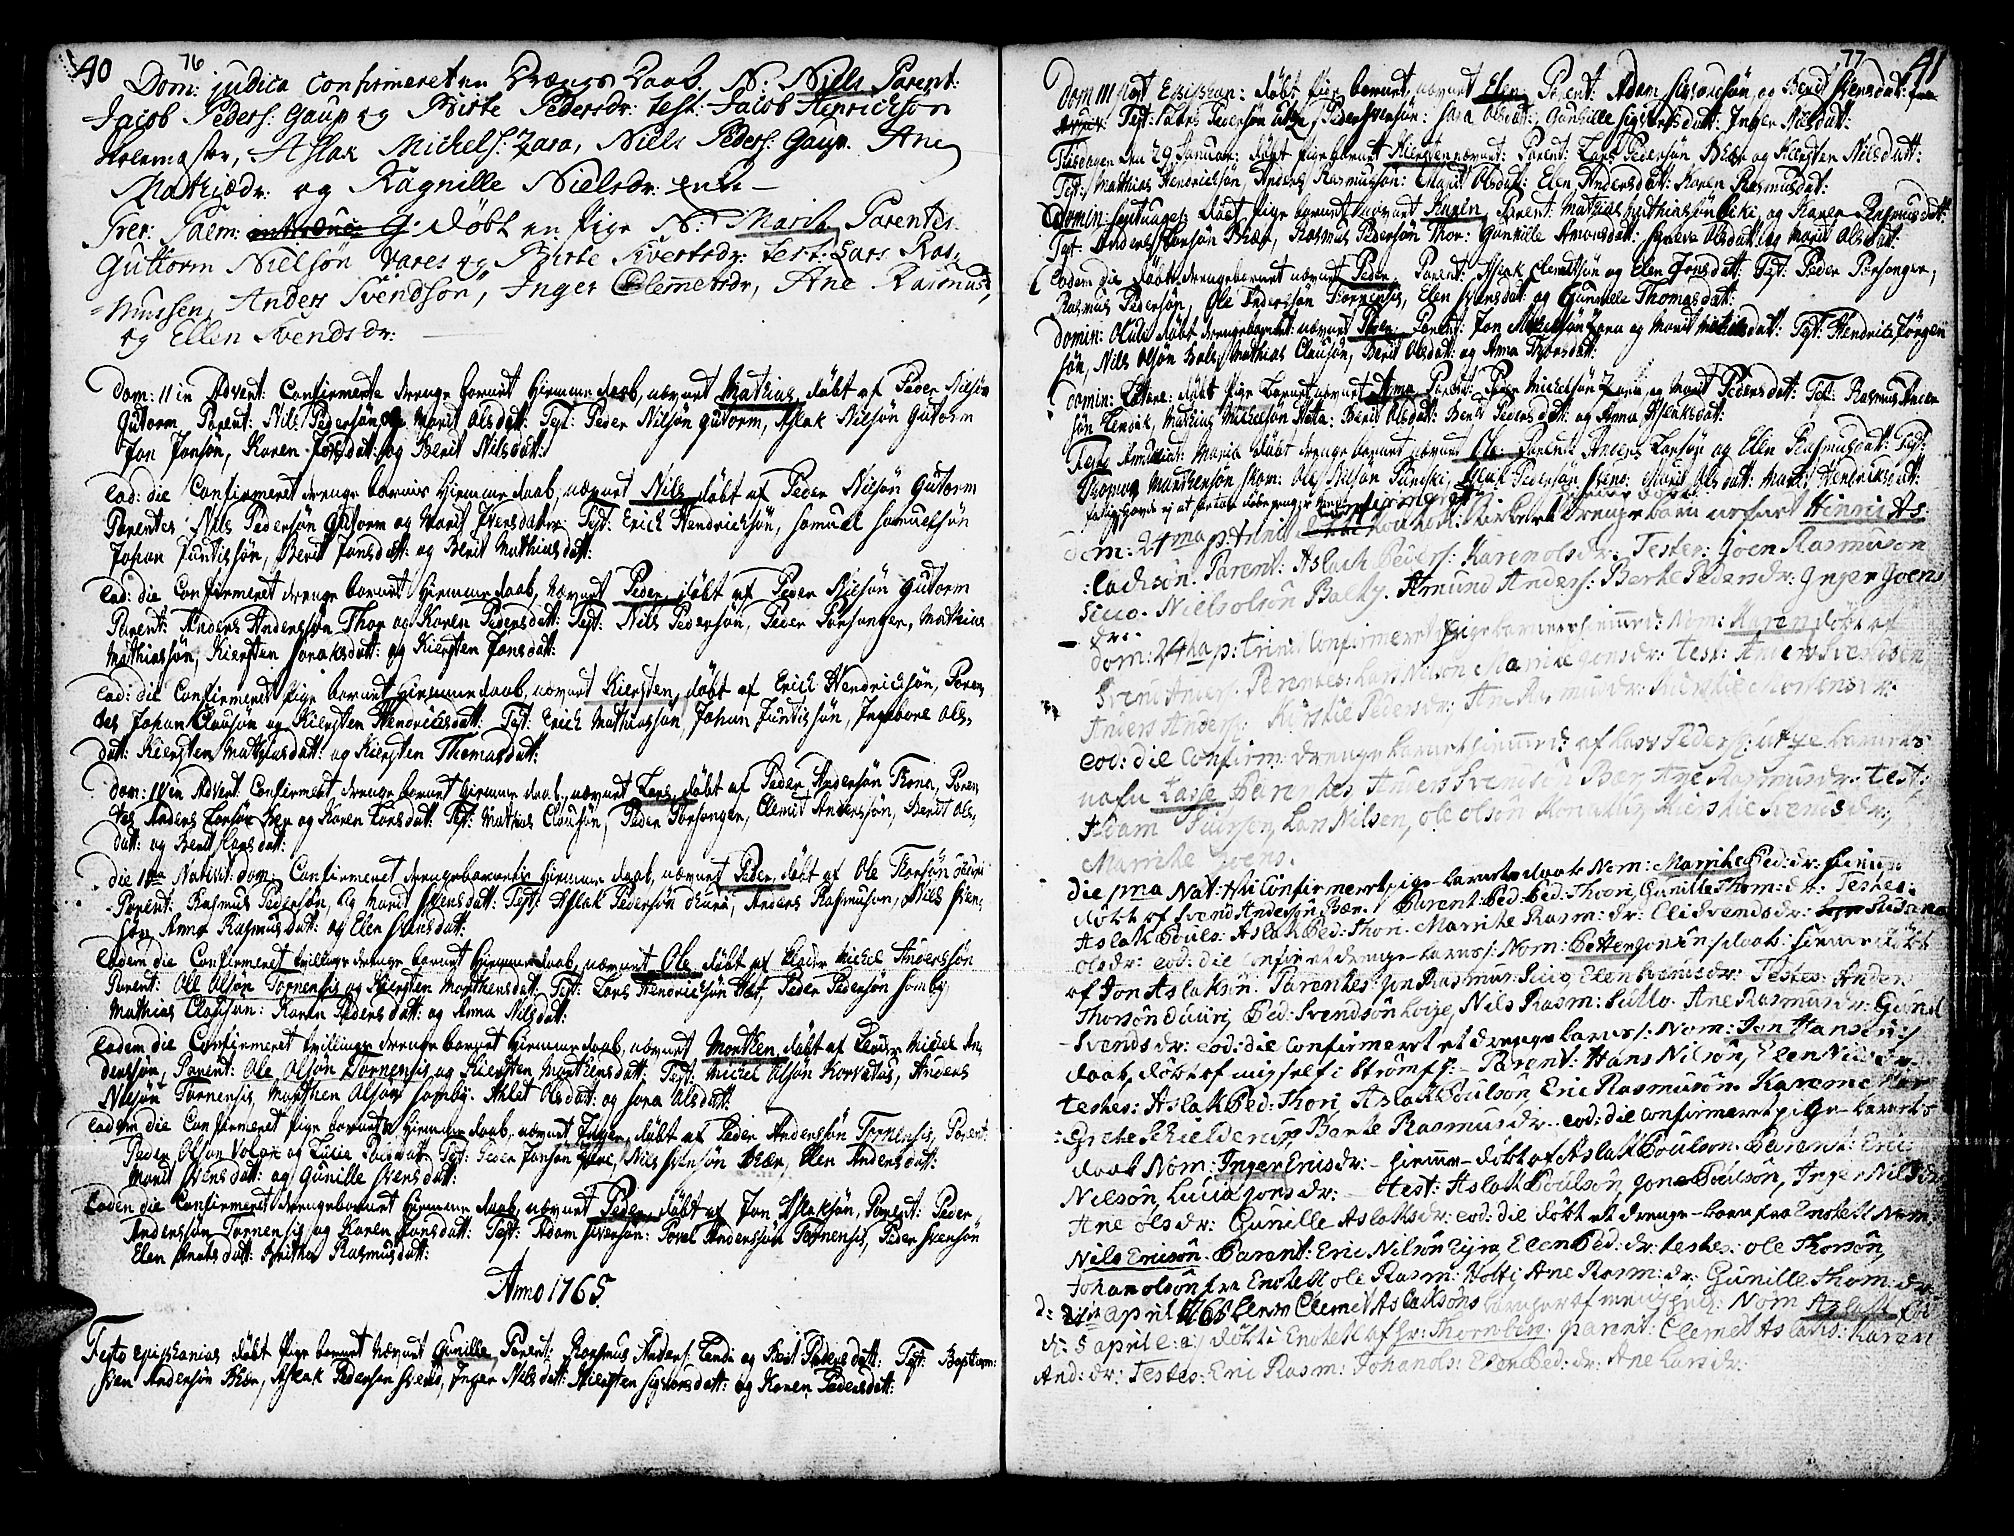 40 76
Dom: judica Confirmeret en Drængs Daab. N: Niels Parent:
Jacob Peders: Gaup og Birte Pedersdr: test: Jacob Henrichsøn
Aslak Michels: Zara, Niels Peders: Gaup. Ane
Mathiædr: og Ragnille Nielsdr: enke
Frer: Palm: døbt en Pige N: Marit Parentes
Guttorm Nielsøn Vares og Birte Sivertsdr: test: Lars Ras-
mussen, Anders Svendsøn, Inger Clemetsdr, Ane Rasmus
og Ellen Svendsdr:
Dom: 11 in Advent: Confirmerte drenge barnet hiemme daab, nævnt Mathias, døbt af Peder Nilsøn
Gutorm Parent: Nils Pedersøn og Marit Olsdatt: Test: Peder Nilsøn Gutorm, Aslak Nilsøn Gutorm
Jon Jonsøn, Karen Jonsdatt: og Berit Nilsdatt:
Eod: die Confirmeret drenge barnets hiemme daab, nævnt Nils døbt af Peder Nilsøn Gutorm
Parentes: Nils Pedersøn Gutorm og Marit Iversdatter: Test: Erich Hendrichsøn, Samuel Samuelsøn
Johan Juntisøn, Berit Jonsdatt: og Berit Mathiasdatt:
Eod: die Confirmeret drenge barnet hiemme daab, nævnt Peder, døbt af Peder Nilsøn Gutorm
Parent: Anders Andersøn Thor og Karen Pedersdatt: Test: Nils Pedersøn, Peder Porsanger, Mathias
Mathiassøn, Kiersten Joraksdatt: og Kiersten Jonsdatt:
Eod: die Confirmeret pige barnet hiemme daab, nævnt Kiersten, døbt af Erich Hendrichsøn, Paren-
tes Johan Clausøn og Kiersten Hendrichsdatt: Test: Erich Mathiassøn, Johan Juntisøn, Ingeborg Ols-
datt: Kiersten Mathiasdatt: og Kiersten Thomasdatt:
Dom: IV in Advent: Confirmeret drenge barnet hiemme daab, nævnt Lars, døbt af Peder Andersøn, Paren-
tes Anders Larsøn Bær og Karen Larsdatt: Test: Mathias Clausøn, Peder Porsanger, Clemit Andersøn, Berit Ols-
datt: og Berit Larsdatt:
die 1ma Nativit: Dom: Confirmeret drengebarnets hiemme daab, nævnt Peder, døbt af Ole Thorsøn
Parent: Rasmus Pedersøn, og Marit Svensdatt: Test: Aslak Pedersøn, Anders Rasmusøn, Nils Sven-
søn Anna Rasmusdatt: og Elen Svensdatt:
Eadem die Confirmeret tvillinge drenge barnet hiemme daab, nævnt Ole døbt af Michel Andersøn
Parent: Ole Olsøn Tornensis og Kiersten Morthensdat. Test: Lars Hendrichsøn, Peder Pedersøn Somby
Mathias Clausøn: Karen Pedersdatt: og Anna Nilsdatt:
Eadem die Confirmeret tvillinge drenge barnet hiemme daab, nævnt Morthen, døbt af Michel An-
dersøn, Parent: Ole Olsøn Tornensis og Kiersten Morthensdatt: Test: Michel Olsøn Korvatus, Anders
Nilsøn Tornensis, Morthen Olsøn Somby. Ahlet Olsdatt: og Sara Olsdatt:
Eadem die Confirmeret pige barnets hiemme daab, nævnt Inger, døbt af Peder Andersøn Tornensis, Parent:
Peder Olsøn og Lucia Test: Peder Jonsøn, Nils Svensøn Bær, Elen Andersdatt:
Marit Svensdatt: og Gunille Svensdatt:
Eadem die Confirmeret drengebarnet hiemme daab, nævnt Peder, døbt af Jon Aslaksøn, Parent: Peder
Andersøn Tornensis og Karen Jonsdatt: Test: Adam Siversøn: Povel Andersøn Tornensis, Peder Svensøn
Elen Anersdatt: Birthe Rasmusdatt:
Anno 1765
Festo Epiphanias døbt Pige barnet nævnt Gunille, Parent: Rasmus Anders: og Berit Pedersdatt: Test: Baptism:
Sven Andersøn Bær, Aslak Pedersøn, Inger Nilsdatt: Kiersten Sigvorsdatt: og Karen Pedersdatt:
77 41
Dom III post Epiphan: døbt pige barnet, nævnt Elen, Parent: Adam Sivorsøn, og Berit Svensdatt:
Test: Lars Pedersøn Utzi, Peder Svensøn: Sara Olsdat:, Gunille Sigversdatt: Inger Nilsdatt:
Tiisdagen den 29 Januar: døbt pige barnet Kiersten nævnt: Parent: Lars Pedersøn Bær og Kiersten Nilsdatt:
Test: Mathias Hendrichsøn, Anders Rasmusøn: Marit Olsdatt: Elen Andersdatt: Karen Rasmusdatt:
Domin: Septuages: døbt pige barnet nævnt Karen, Parent: Mathias Mathiassøn Eiki, og Karen Rasmusdatt:
Test: Anders Larsøn Bær, Rasmus Pedersøn Thor: Gunille Amonsdatt: Olsdatt: og Marit Olsdatt:
Eodem die døbt drengebarnet nævnt Peder, Parent: Aslak Clemitsøn og Elen Jonsdatt: Test: Peder Porsanger,
Rasmus Pedersøn, Ole Andersøn Tornensis, Elen Svensdatt: og Gunnille Thomasdatt:
Domin: Oculi døbt drengebarnet nævnt Peder, Parent: Jon Michelsøn Zara og Marit Test: Hendrich Jørgen-
søn, Nils Olsøn Balk, Mathias Clausøn, Berit Olsdatt: og Anna Thorsdatt:
Domin: Lætare: døbt pige barnet nævnt Anna Parent: Peder Michelsøn Zara og Marit Pedersdatt: Test: Rasmus Ander-
søn, Mathias Michelsøn Hætta: Berit Olsdatt: Berit Pedersdatt: og Anna Aslaksdatt:
Festo Annunciat: Mariæ døbt drenge barnet nævnt Ole, Parent: Anders Larsøn og Elen Rasmusdatt: Test:
Thomas Morthensøn Skum: Ole Nilsøn, Aslak Pedersøn: Marit Olsdatt: Marit Hendrichsdatt:
Dom: 24ma p: Trinit: Confirmeret drengebarn nafnt Henric As-
:lachsøn. Parent: Aslach Peders: Karen olsdr: Testes: Joen Rasmusøn
Sicco. Niels olsøn Balky. Amund Anders: Berte Pedersdr: Inger Joens
dr:
Dom: 24ma p: Trinit: Confirmeret Pigebarnet hiemmed: Nom: Karen døbt af
Sven Anders: Parentes: Lars Nilsøn Marrite Jonsdr: Test: Anders Svendsen
Anders Anders: Kirstie Pedersdr: Ane Rasmusdr: Kirstie Mortensdr:
eod: die Confirm: drenge barnet hiemmed: af Lars Peders: utze barnets
nafn Lasse Parentes Anders Svensøn Bær Ane Rasmusdr: Test:
Adam Siversøn, Lars Nilsen, ole olsøn, Kirstie Svensdr:,
Marrite Joens.
die 1ma Nat: Xti Confirmeret pige-barnets daab Nom: Marrite Ped: dr: hiemme-
døbt af Svend Andersøn Bær. Parent: Ped: Ped: Thori, Gunille Thom: dr: Testes:
Aslak Pouls: Aslak Ped: Thon. Marrite Rasm: dr: Eli Svends dr: Susana
ols dr: eod: die Confir et drenge-barns/: Nom: Petter Jonsøn/ daab: hiemme døbt
af Jon Aslaksøn. Parentes: Jon Rasmus: Sicco, Elen Svensdr: Testes: Anders
Thorsøn Dauri, Ped: Svendsøn, Nils Rasm: Ane Rasmusdr: Gunil
Svends dr: eod: die Confirmeret et drenge barns/: Nom: Jon Hansøn:/
daab døbt af mig self i Strømf: - Parent: Hans Nilsøn, Elen Nils dr:
testes: Aslak Ped: Thori, Aslak Poulsøn, Eric Rasmusøn. Karen
Grethe Schielderup, Berte Rasmusdr: eod: die Confirmeret pige-barnets
daab Nom: Inger Erics dr: - hiemme-døbt af Aslak Poulsøn. Parent: Eric
Nilsøn, Lucia Jons dr: - test: Aslak Poulsøn, Jon Poulsøn, Inger Nils dr
Ane ols dr: Gunille Aslaks dr: eod: die døbt et drenge-barn fra Enotekk Nom:
Nils Ericsøn. Parent: Eric Nilsøn, Elen Ped: dr: testes: ole Thorsøn,
Johan olsøn fra Enotekk ole Rasm: Holti Ane Rasm: dr: Gunille Thom: dr:
april 1766 blev Clemet Aslaksøns Nom Aslak
d: 5 april døbt i Enotekk af hr: Thornberg. parent: Clemet Aslaks: Karen
And: dr: Testes: Eric Rasm: Johan ols: Elen Ped: dr: Ane Lars dr: